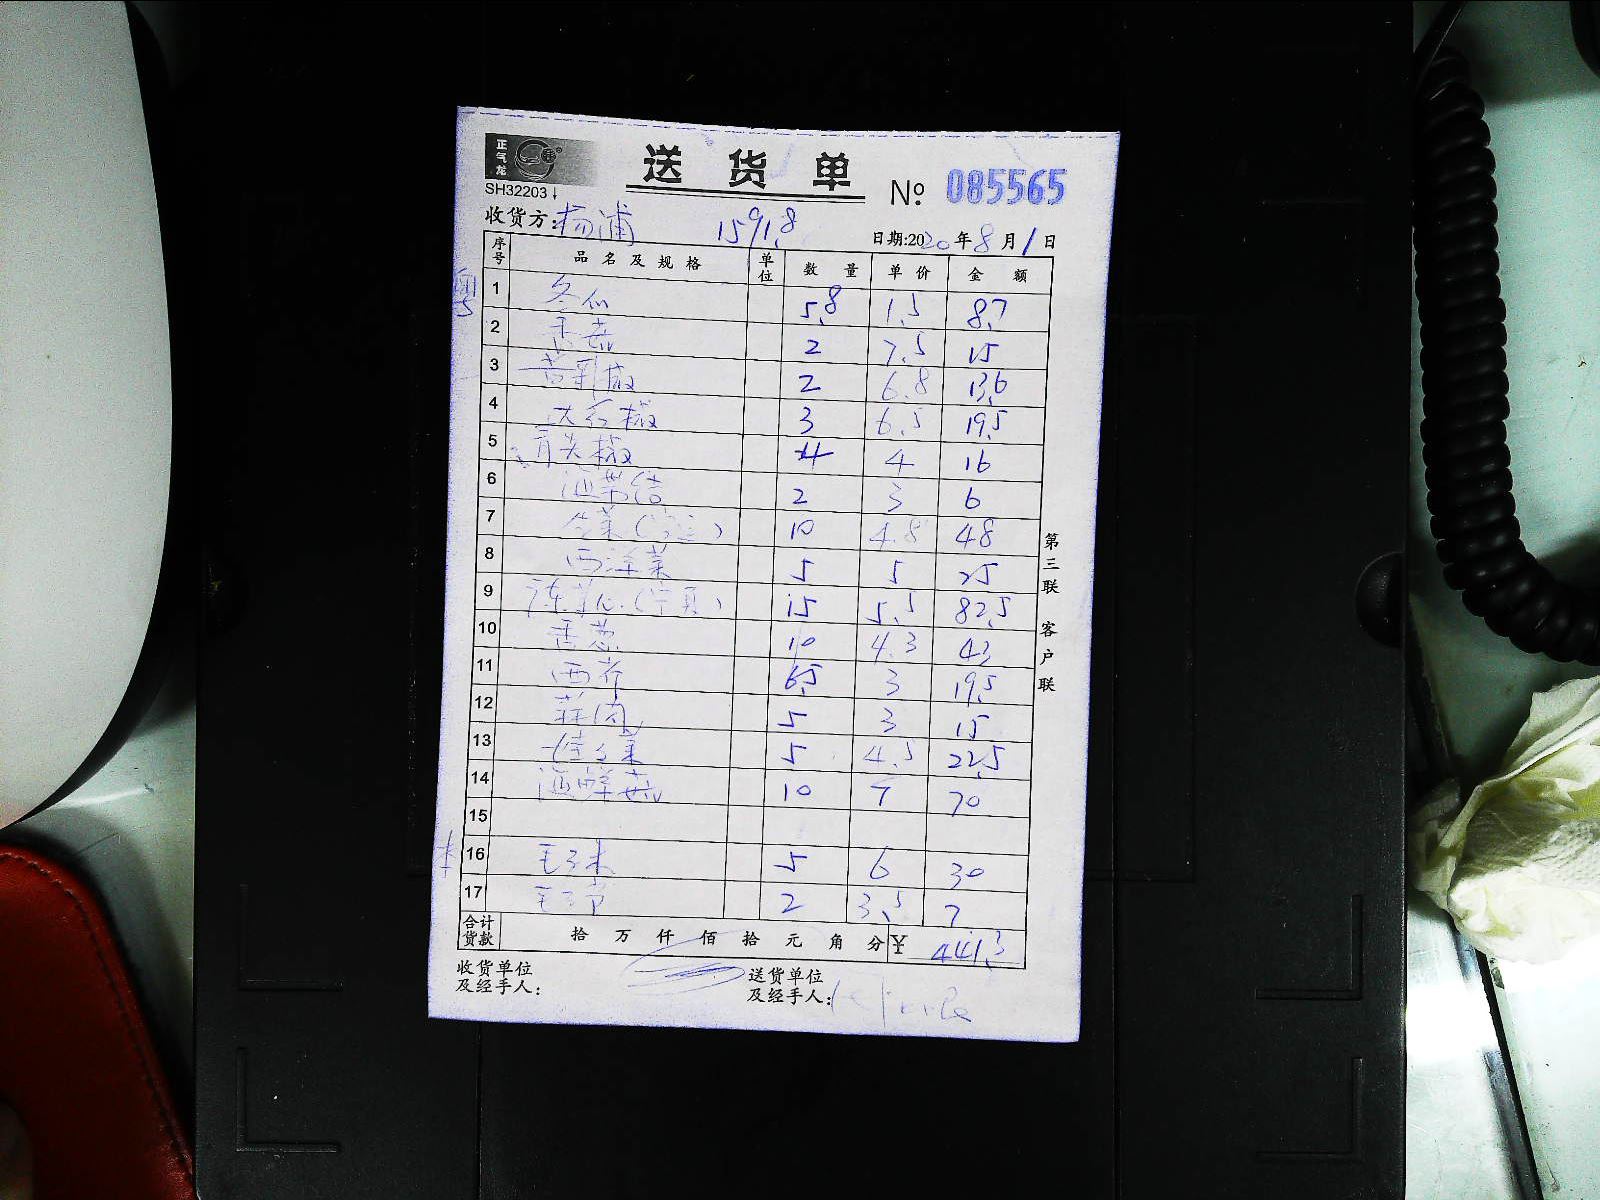 正气龙
送货单
SH32203
№ 085565
收货方: 杨浦 1591.8 日期:2020年8月1日
序号 品名及规格 单位 数量 单价 金额
粤
1 冬瓜 5.8 1.5 8.7
2 香菇 2 7.5 15
3 黄乳椒 2 6.8 13.6
4 大红椒 3 6.5 19.5
5 青尖椒 4 4 16
6 海带结 2 3 6
7 生菜 10 4.8 48
8 西洋菜 5 5 25
9 菜心(宁夏) 15 5.5 82.5
10 香葱 10 4.3 43
11 西芹 6.5 3 19.5
12 5 3 15
13 娃娃菜 5 4.5 22.5
14 海鲜菇 10 7 70
15
16 毛豆米 5 6 30
17 毛豆节 2 3.5 7
合计货款 拾 万 仟 佰 拾 元 角 分 ¥ 441.3
收货单位及经手人:
送货单位及经手人:
第三联 客户联